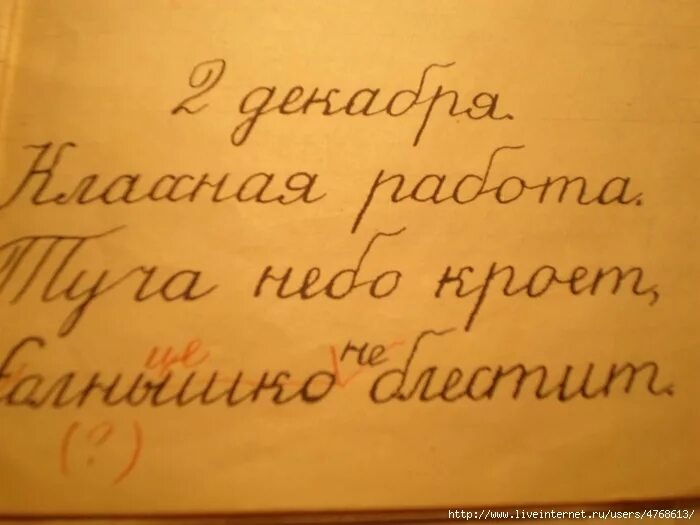 2 декабря.
Классная работа.
Туча небо кроет,
це не
Солнышко блестит.
(?)
http://www.liveinternet.ru/users/4768613/